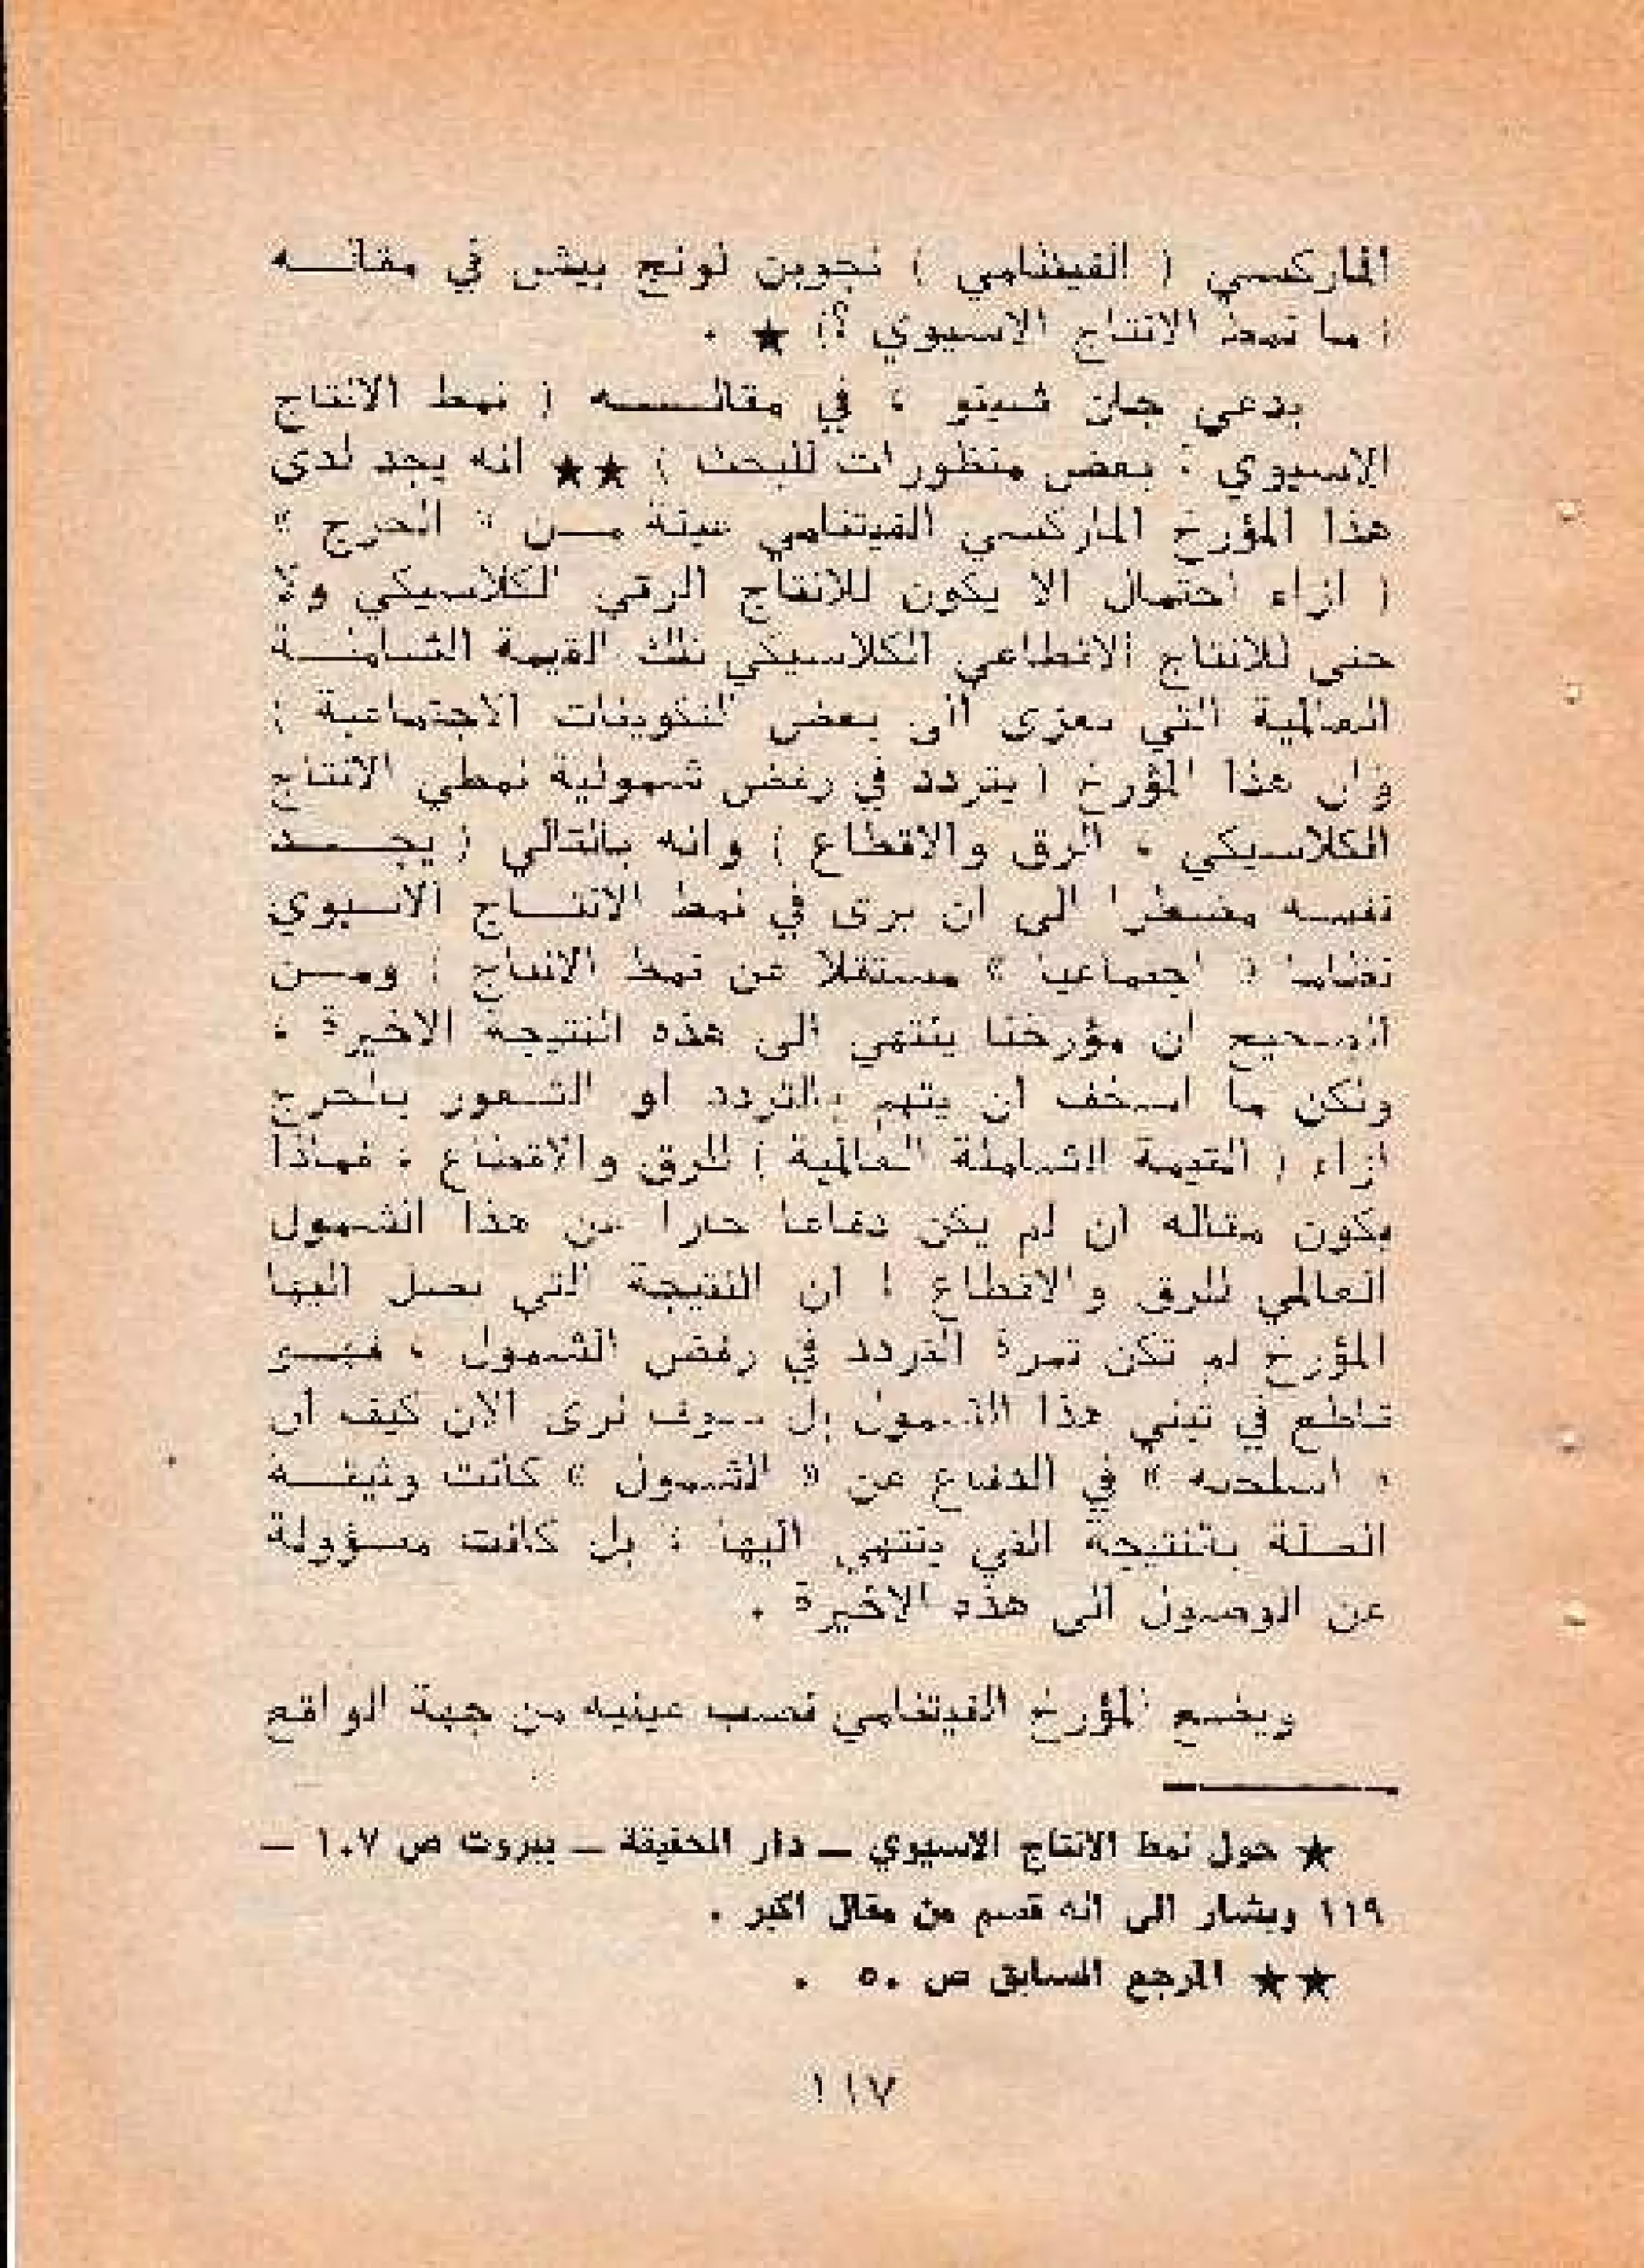 الماركسي ( الفيتنامي ) نجوين لونج بيش في مقاله
( ما نمط الانتاج الاسيوي ؟) ★ .
يدعي جان شينو ، في مقاله ( نمط الانتاج
الاسيوي : بعض منظورات للبحث ) ★★ انه يجد لدى
هذا المؤرخ الماركسي الفيتنامي عينة من « الحرج »
( ازاء احتمال الا يكون للانتاج الرقي الكلاسيكي ولا
حتى للانتاج الاقطاعي الكلاسيكي تلك القيمة الشاملة
العالمية التي تعزى الى بعض التكوينات الاجتماعية )
وان هذا المؤرخ ( يتردد في رفض شمولية نمطي الانتاج
الكلاسيكي ، الرق والاقطاع ) وانه بالتالي ( يجد
نفسه مضطرا الى ان يرى في نمط الانتاج الاسيوي
نظاما « اجتماعيا » مستقلا عن نمط الانتاج ) ومن
الصحيح ان مؤرخنا ينتهي الى هذه النتيجة الاخيرة ،
ولكن ما اسخف ان يتهم بالتردد او الشعور بالحرج
ازاء ( القيمة الشاملة العالمية ) للرق والاقطاع ، فماذا
يكون مقاله ان لم يكن دفاعا حارا عن هذا الشمول
العالمي للرق والاقطاع ! ان النتيجة التي يصل اليها
المؤرخ لم تكن ثمرة التردد في رفض الشمول ، فهو
قاطع في تبني هذا الشمول بل سوف نرى الان كيف ان
« اسلحته » في الدفاع عن « الشمول » كانت وثيقة
الصلة بالنتيجة التي ينتهي اليها ، بل كانت مسؤولة
عن الوصول الى هذه الاخيرة .
ويضع المؤرخ الفيتنامي نصب عينيه من جهة الواقع
★ حول نمط الانتاج الاسيوي – دار الحقيقة – بيروت ص ١٠٧ –
١١٩ ويشار الى انه قسم من مقال اكبر .
★★ المرجع السابق ص ٥٠ .
١١٧